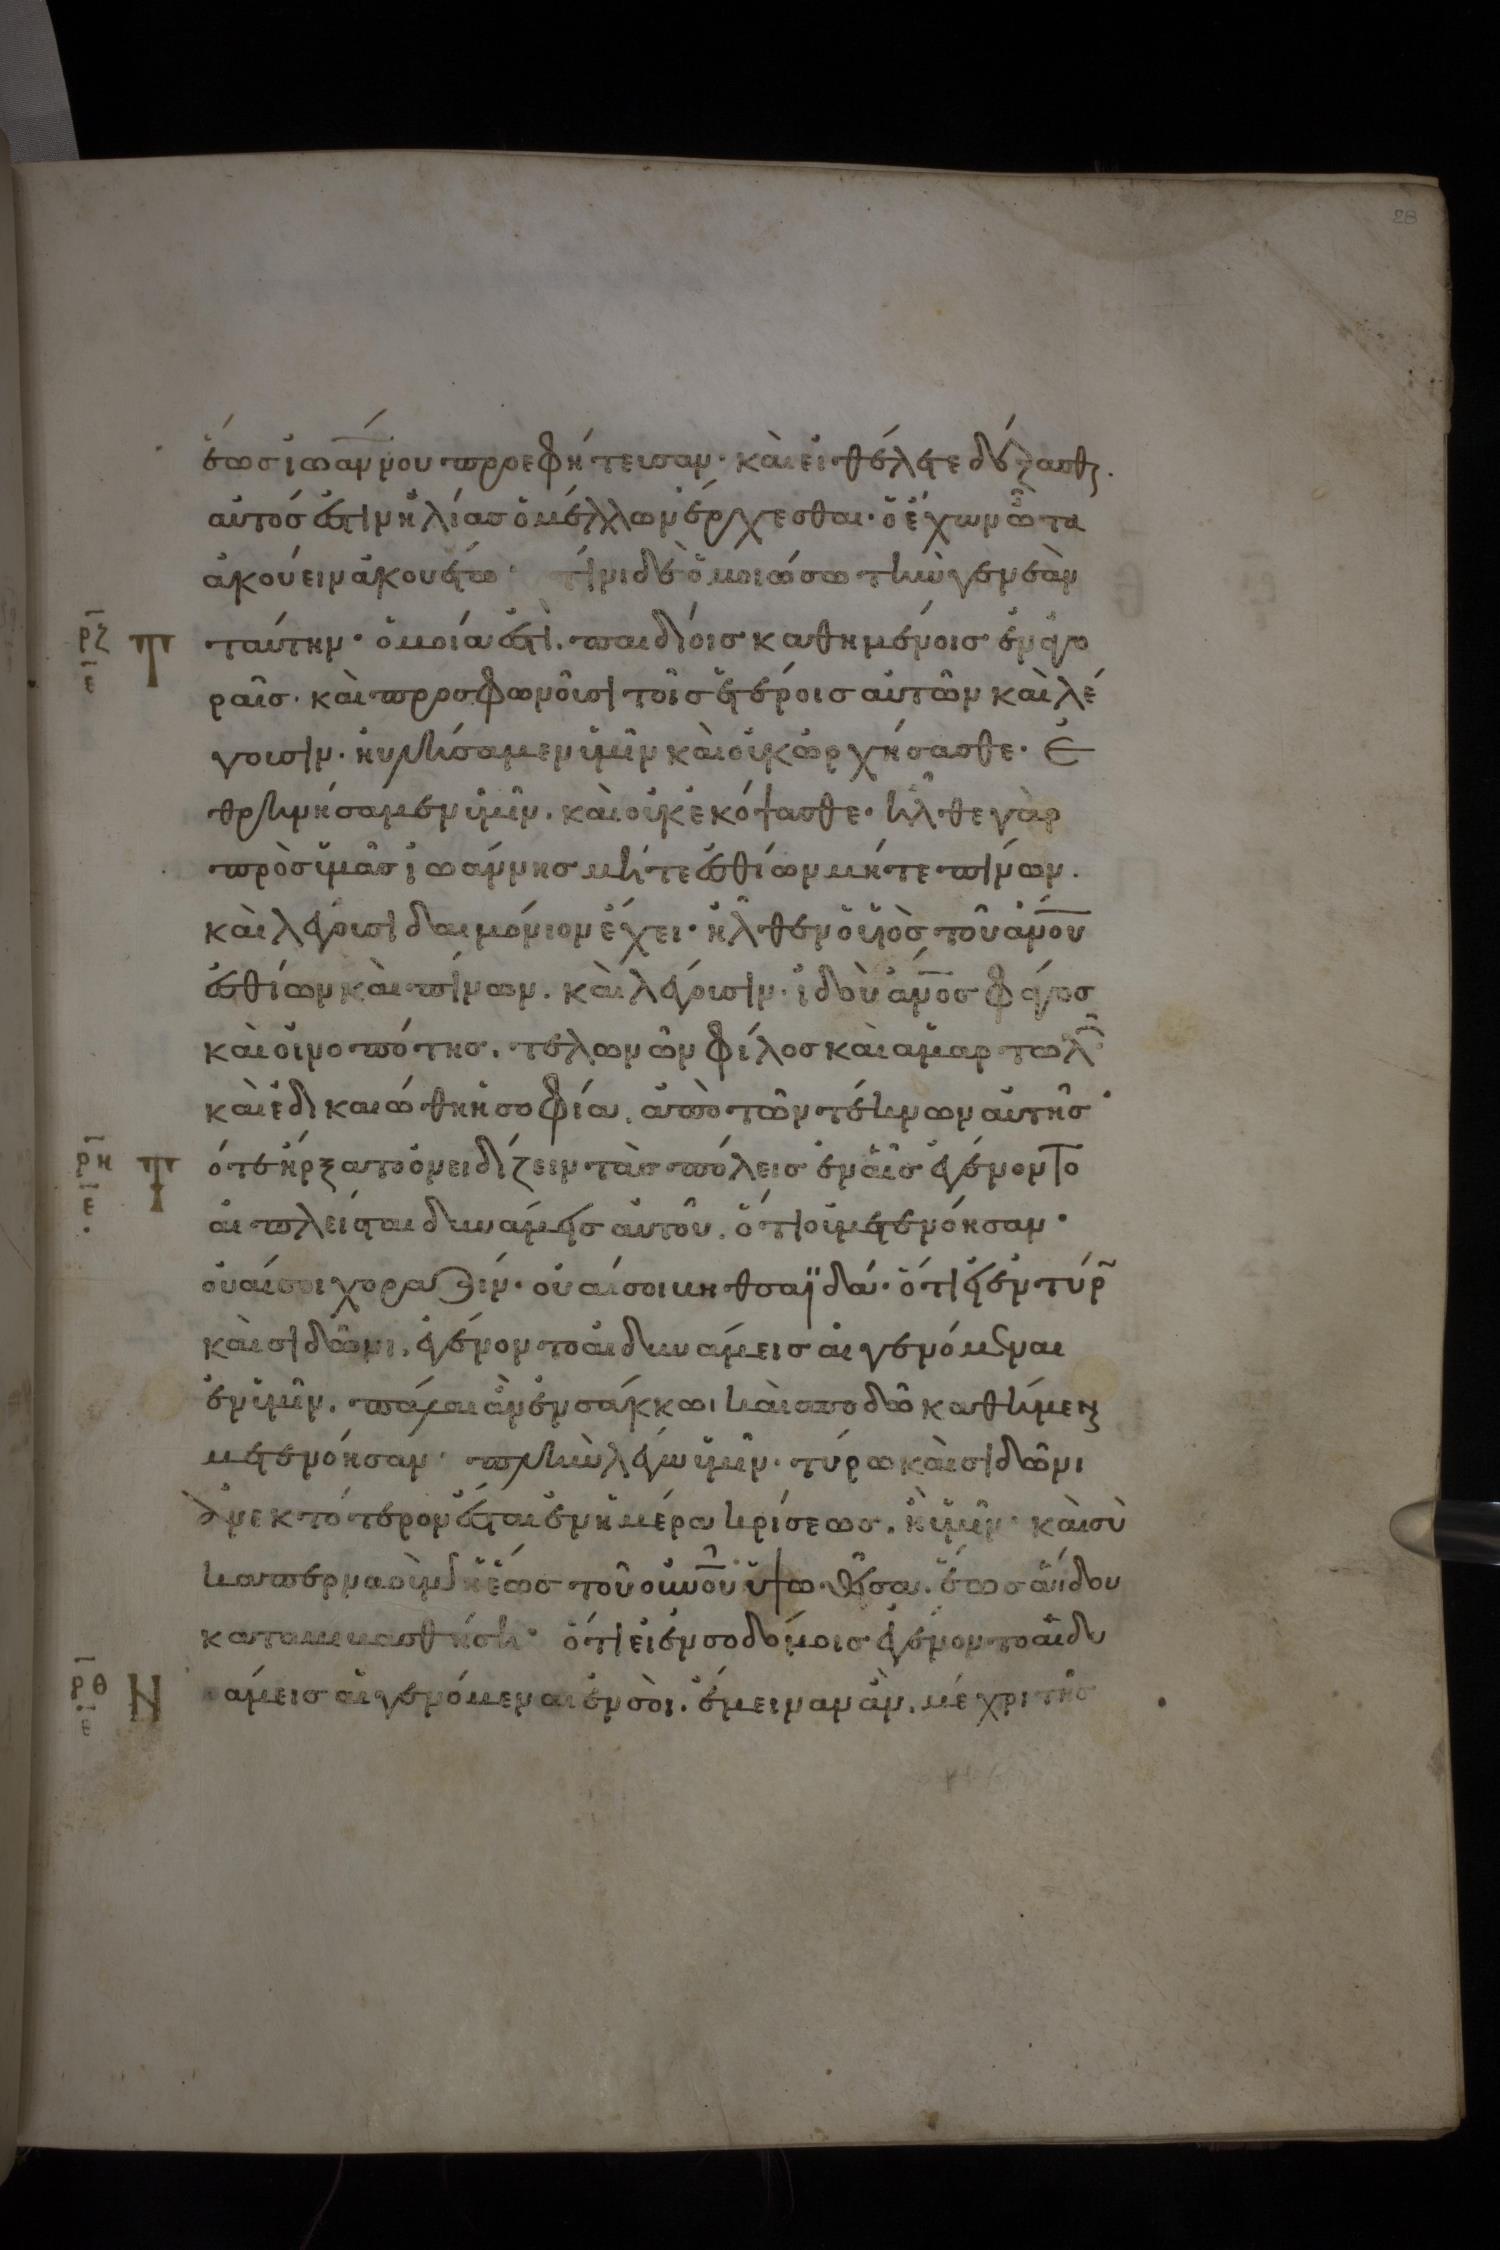 28
ἕως ἰωάννου προεφήτευσαν· καὶ εἰ θέλετε δέξασθαι.
αὐτός ἐστιν ἠλίας ὁ μέλλων ἔρχεσθαι· ὁ ἔχων ὦτα
ἀκούειν ἀκουέτω· τίνι δὲ ὁμοιώσω τὴν γενεὰν
ρζ ε Τ ταύτην· ὁμοία ἐστὶ. παιδίοις καθημένοις ἐν ἀγο
ραῖς· καὶ προσφωνοῦσι τοῖς ἑτέροις αὐτῶν καὶ λέ
γουσιν· ηὐλήσαμεν ὑμῖν καὶ οὐκ ὠρχήσασθε· Ε
θρηνήσαμεν ὑμῖν. καὶ οὐκ ἐκόψασθε· ἦλθε γὰρ
πρὸς ὑμᾶς ἰωάννης μήτε ἐσθίων μήτε πίνων.
καὶ λέγουσι δαιμόνιον ἔχει· ἦλθεν ὁ υἱὸς τοῦ ἀνου
ἐσθίων καὶ πίνων. καὶ λέγουσιν· ἰδοὺ ἀνος φάγος
καὶ οἰνοπότης. τελωνῶν φίλος καὶ ἁμαρτωλῶ
καὶ ἐδικαιώθη ἡ σοφία. ἀπὸ τῶν τέκνων αὐτῆς·
ρη ε Τ ότε ἤρξατο ὀνειδίζειν τὰς πόλεις ἐν αἷς ἐγένοντο
αἱ πλείσται δυνάμεις αὐτοῦ. ὅτι οὐ μετενόησαν·
οὐαί σοι χοραζίν· οὐαί σοι βηθσαϊδά· ὅτι εἰ ἐν τύρω
καὶ σιδῶνι. ἐγένοντο αἱ δυνάμεις αἱ γενόμεναι
ἐν ὑμῖν. πάλαι ἂν ἐν σάκκωι καὶ σποδῶ καθήμεναι
μετενόησαν· πλὴν λέγω ὑμῖν· τύρω καὶ σιδῶνι
ἀνεκτότερον ἔσται ἐν ἡμέρα κρίσεως. ἢ ὑμῖν· καὶ σὺ
καπερναοὺμ ἡ ἕως τοῦ οὐνοῦ ὑψωθεῖσα. ἕως ἅιδου
καταβιβασθήση· ὅτι εἰ ἐν σοδόμοις ἐγένοντο αἱ δυ
ρθ ε Ν νάμεις αἱ γενόμεναι ἐν σοὶ. ἔμειναν ἂν. μέχρι τῆς